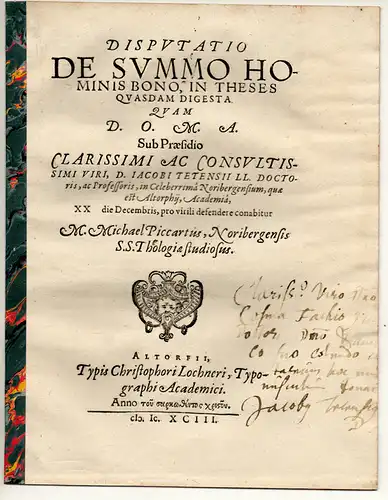 DISPVTATIO
DE SVMMO HO-
MINIS BONO, IN THESES
QVASDAM DIGESTA
QVAM
D. O. M. A.
Sub Præsidio
CLARISSIMI AC CONSVLTIS-
SIMI VIRI, D. IACOBI TETENSII LL. DOCTO-
ris, ac Professoris, in Celeberrimâ Noribergensium, quæ
est Altorphij, Academiâ,
XX die Decembris, pro virili defendere conabitur
M. Michael Piccartus, Noribergensis
S.S. Thologiæ studiosus.
Clariss.o Viro Dno
ALTORFII,
Typis Christophori Lochneri, Typo-
graphi Academici.
Anno τοῦ σαρκωθέντος χριστοῦ.
cIɔ. Iɔ. XCIII.